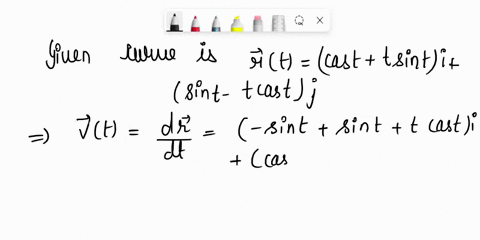 Given curve is r⃗(t) = (cost + tsint)i+
(sint- tcost)j
⇒ V⃗(t) = dr⃗/dt = (-sint + sint + t cost)i
+ (cos